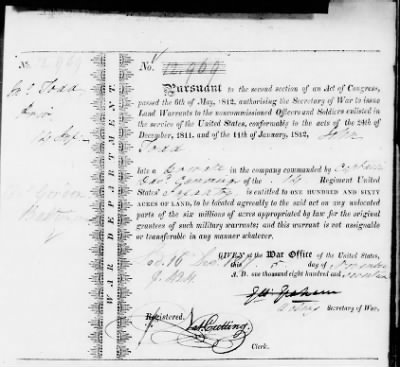 No. 12.969
No. 12.969
Jno Todd
Pursuant to the second section of an Act of Congress,
passed the 6th of May, 1812, authorising the Secretary of War to issue
Land Warrants to the noncommissioned Officers and Soldiers enlisted in
the service of the United States, conformably to the acts of the 24th of
December, 1811, and of the 11th of January, 1812, John
Todd
late a private in the company commanded by Captain
of the 14 Regiment United
States Infantry is entitled to ONE HUNDRED AND SIXTY
ACRES OF LAND, to be located agreeably to the said act on any unlocated
parts of the six millions of acres appropriated by law for the original
grantees of such military warrants; and this warrant is not assignable
or transferable in any manner whatever.
WAR DEPARTMENT
GIVEN at the War Office of the United States,
this 5 day of November
A. D. one thousand eight hundred and
Graham
Secretary of War.
Registered.
Cutting
Clerk.